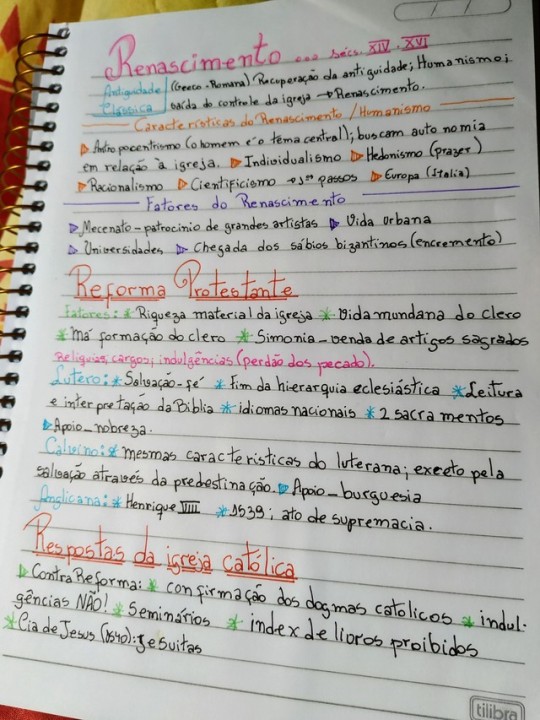 Renascimento ... sécs. XIV - XVI
Antiguidade Clássica
(Greco-Romana) Recuperação da antiguidade; Humanismo;
saída do controle da igreja → Renascimento.
Características do Renascimento / Humanismo
Antropocentrismo (o homem é o tema central); buscam autonomia
em relação à igreja. Individualismo Hedonismo (prazer)
Racionalismo Cientificismo → 1ºs passos Europa (Itália)
Fatores do Renascimento
Mecenato - patrocínio de grandes artistas Vida urbana
Universidades Chegada dos sábios bizantinos (encremento)
Reforma Protestante
Fatores: * Riqueza material da igreja * vida mundana do clero
* má formação do clero * Simonia - venda de artigos sagrados
Reliquias, cargos, indulgências (perdão dos pecado).
Lutero: * Salvação - fé * Fim da hierarquia eclesiástica * Leitura
e interpretação da Biblia * idiomas nacionais * 2 sacramentos
Apoio - nobreza.
Calvino: * mesmas caracteristicas do luterana; execto pela
salvação através da predestinação. Apoio - burguesia
Anglicana: * Henrique VIII * 1539; ato de supremacia.
Respostas da igreja católica
ContraReforma: * confirmação dos dogmas catolicos * indul-
gências NÃO! * Seminários * index de livros proibidos
* Cia de Jesus (1540): Jesuitas
tilibra